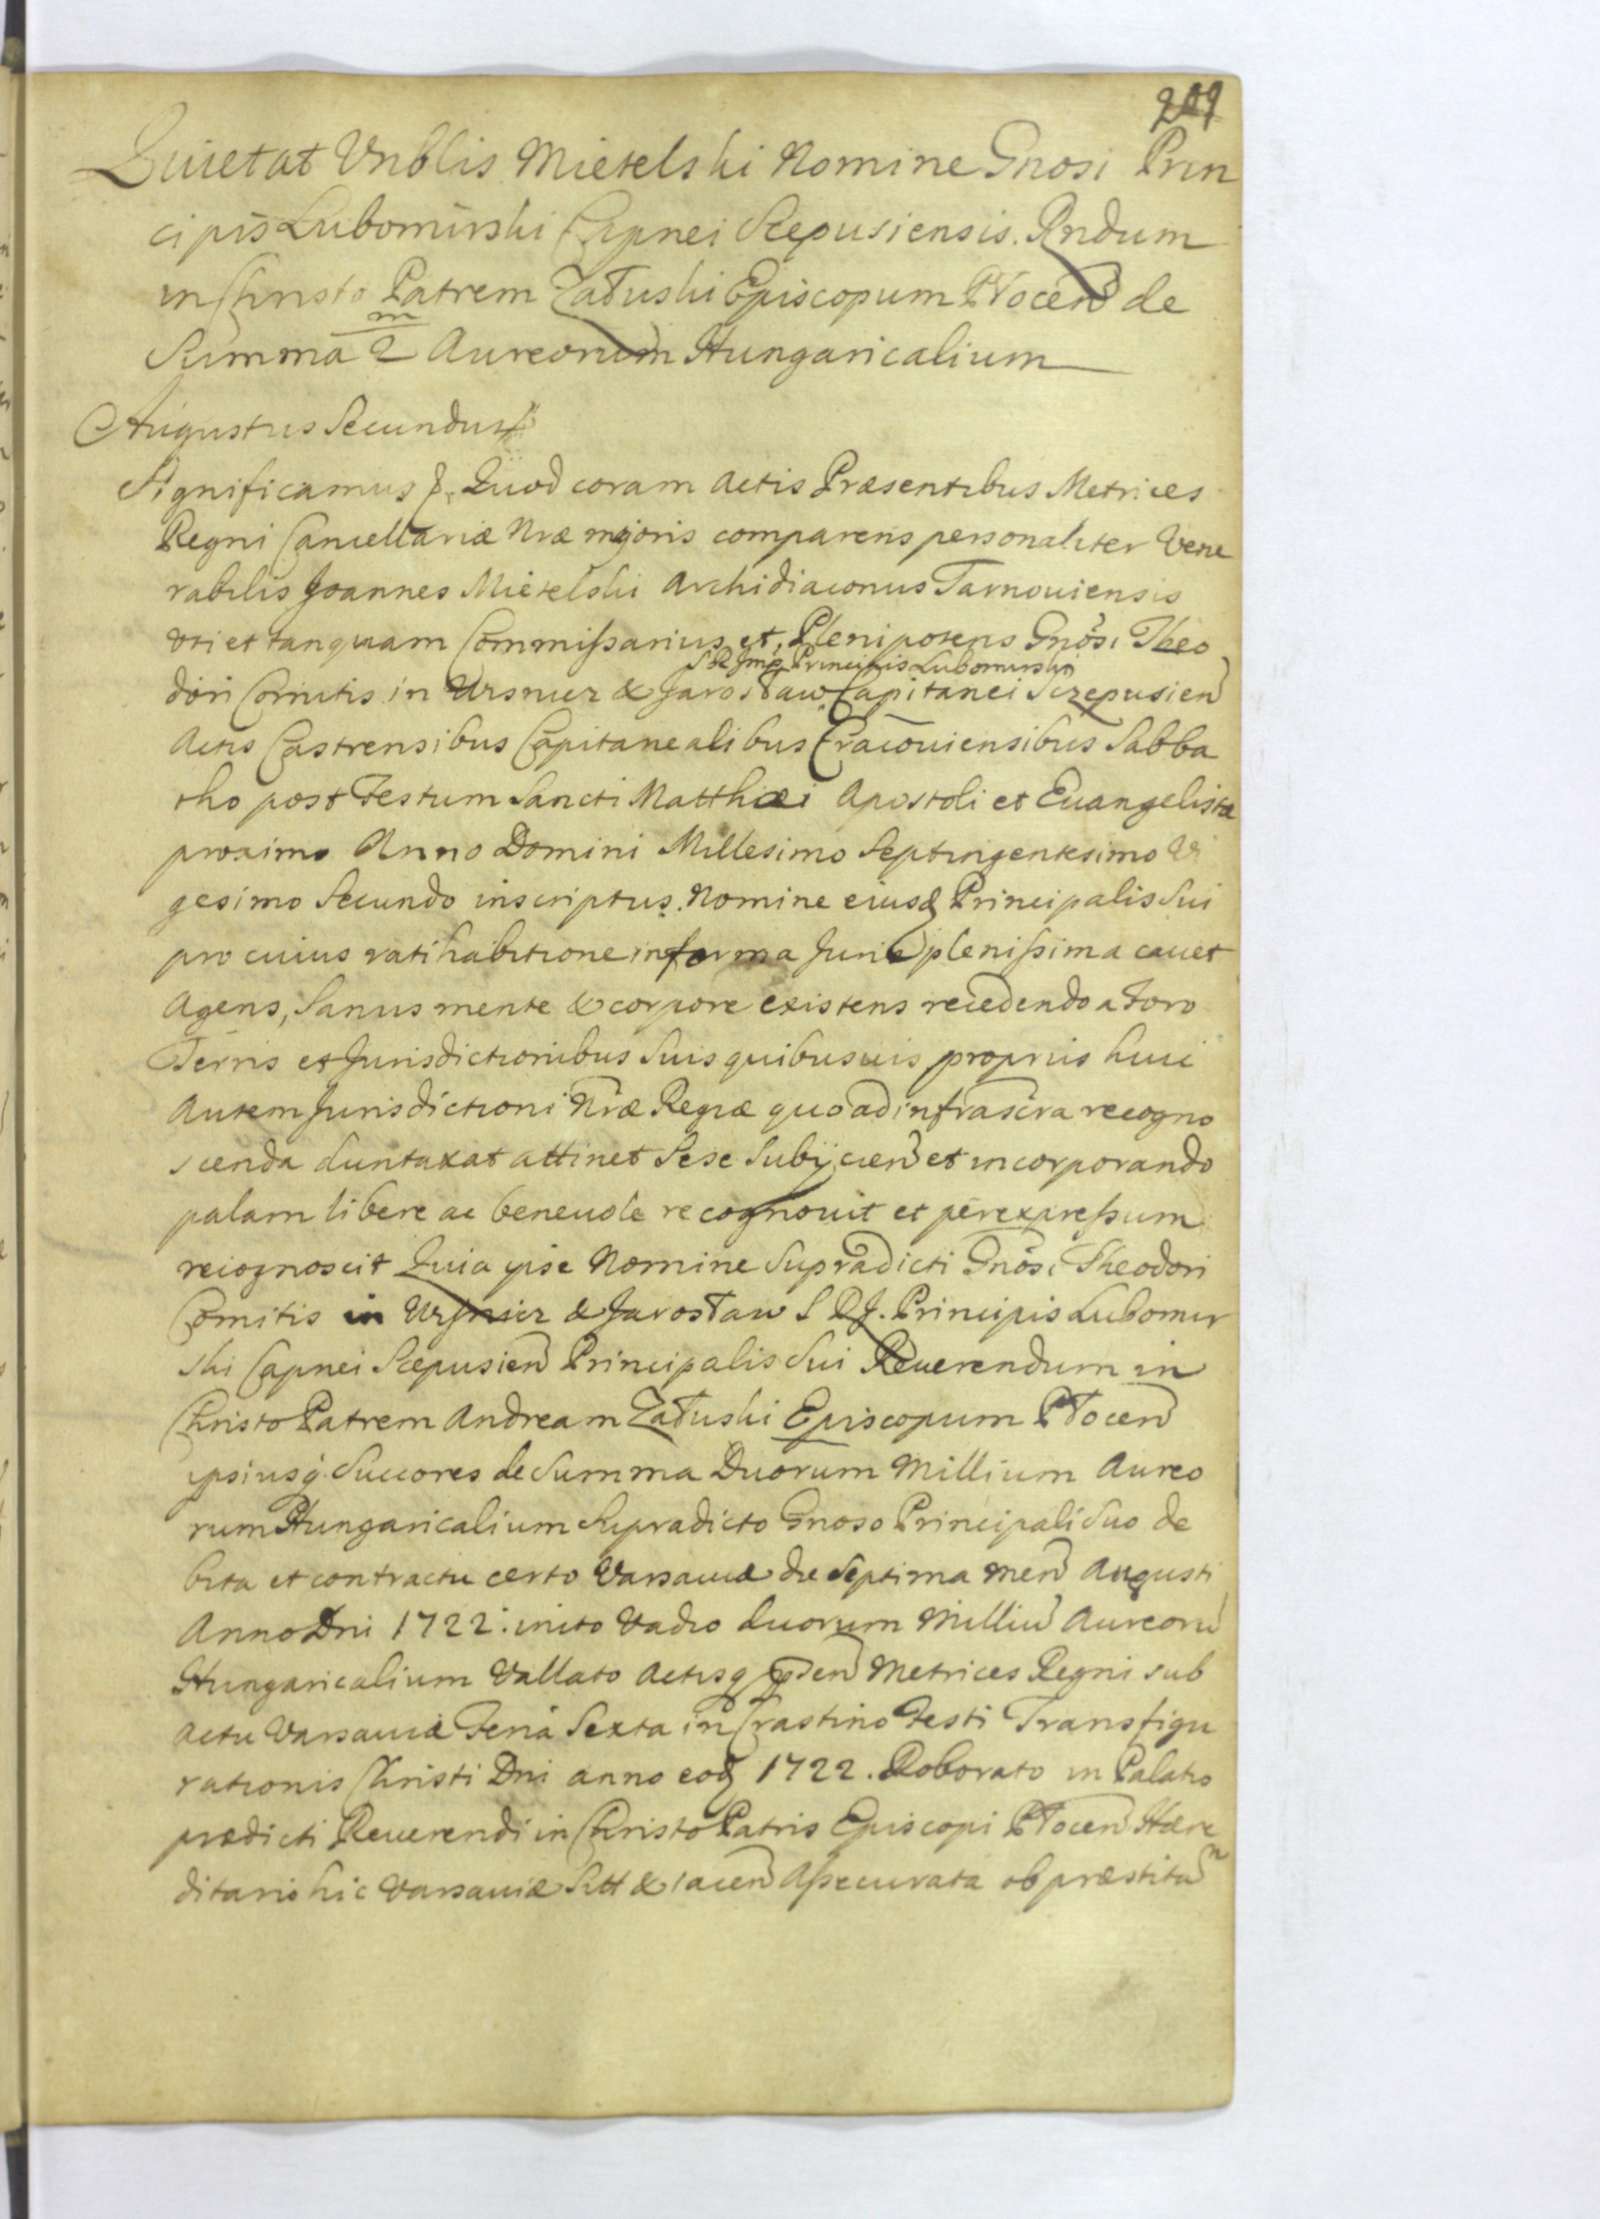 209
Quietat Vnblis Mietelski Nomine Gnosi Prin
cipis Lubomirski Capnei Scepusiensis. Rndum
in Christo Patrem Załuski Episcopum Płocen de
Summa 2 m Aureorum Hungaricalium
Augustus Secundus
Significamus &. Quod coram Actis Præsentibus Metrices
Regni Cancellariæ Nræ majoris comparens personaliter Vene
rabilis Joannes Mietelski Archidiaconus Tarnouiensis
Vti et tanquam Commissarius et Plenipotens Gnosi Theo
S R Imp Principis Lubomirski
dori Comitis in Wisnicz & Jarosław Capitanei Sczepusien
Actis Castrensibus Capitanealibus Cracouiensibus Sabba
tho post Festum Sancti Matthæi Apostoli et Euangelistæ
proximo Anno Domini Millesimo Septingentesimo Vi
gesimo Secundo inscriptus. Nomine eiusq Principalis Sui
pro cuius ratihabitione in forma Juris plenissima cauet
Agens, Sanus mente & corpore existens recedendo a Foro
Terris et Jurisdictionibus Suis quibusuis propriis huic
Autem Jurisdictioni Nræ Regiæ quo ad infrascra recogno
scenda duntaxat attinet Sese Subijcien et incorporando
palam libere ac beneuole recognouit et per expressum
recognoscit Quia ipse Nomine Supradicti Gnosi Theodori
Comitis in Wisnicz & Jarosław S R J. Principis Lubomir
ski Capnei Scepusien Principalis Sui Reuerendum in
Christo Patrem Andream Załuski Episcopum Płocen
ipsiusq Succores de Summa Duorum Millium Aureo
rum Hungaricalium Supradicto Gnoso Principali Suo de
bita et contractu certo Varsauiæ die Septima men Augusti
Anno Dni 1722. inito Vadio duorum Milliu Aureoru
Hungaricalium Vallato Actisq psen Metrices Regni sub
Actu Varsauiæ Feria Sexta in Crastino Festi Transfigu
rationis Christi Dni anno eod 1722. Roborato in Palatio
prædicti Reuerendi in Christo Patris Episcopi Płocen Hære
ditario hic Varsauiæ Sitt & iacen Assecurata ob præstita